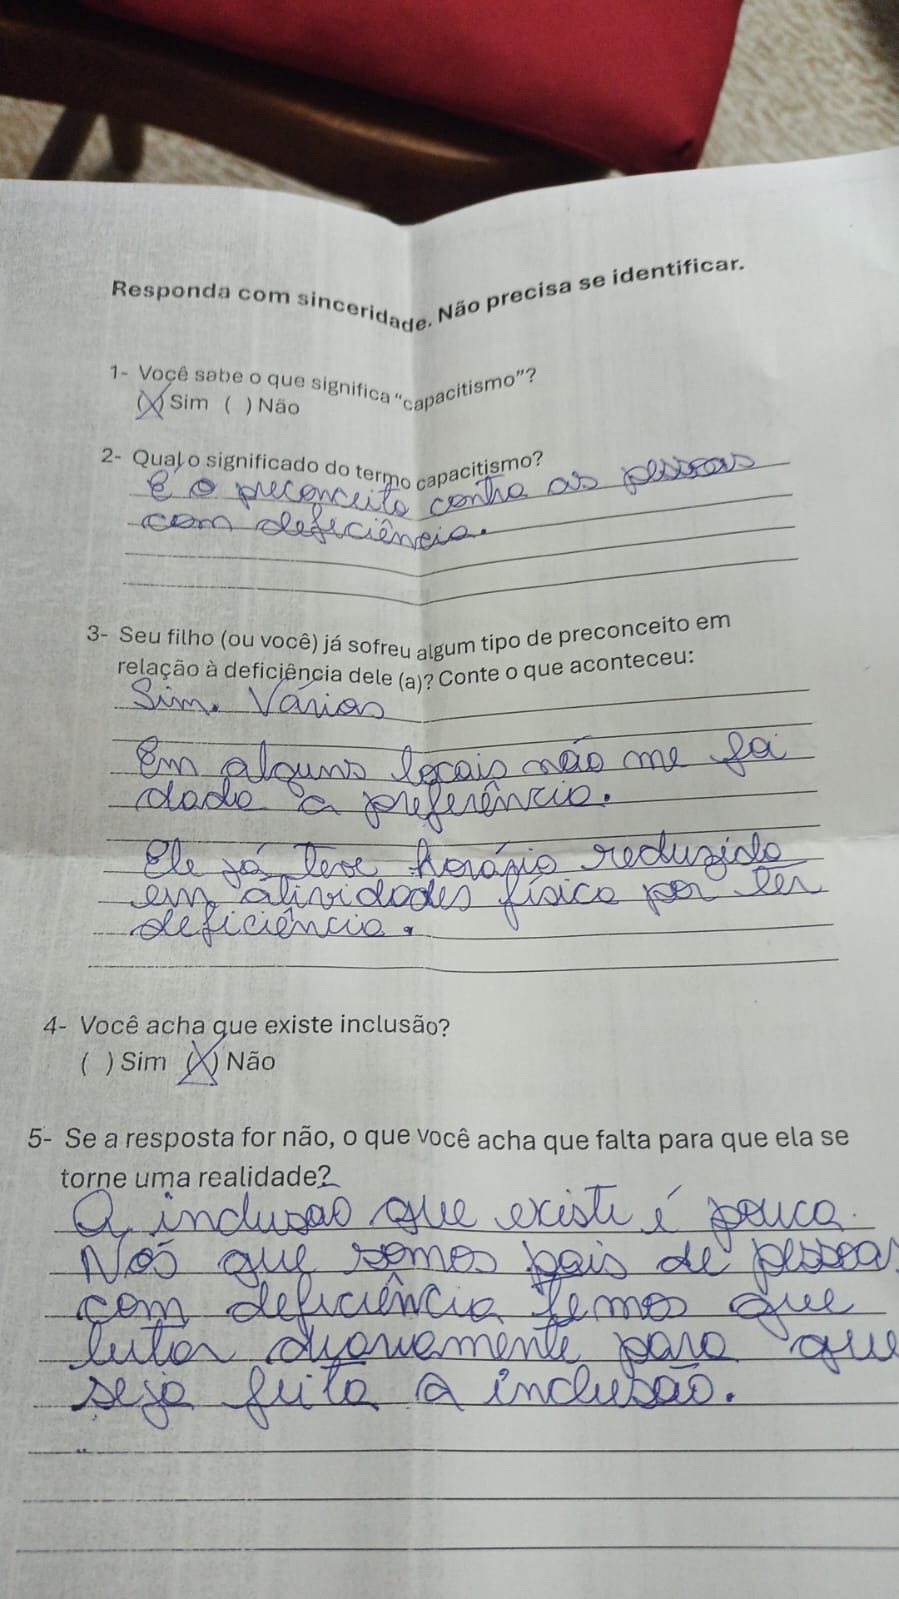 Responda com sinceridade. Não precisa se identificar.
1- Você sabe o que significa “capacitismo”?
(X) Sim ( ) Não
2- Qual o significado do termo capacitismo?
É o preconceito contra as pessoas
com deficiência.
3- Seu filho (ou você) já sofreu algum tipo de preconceito em
relação à deficiência dele (a)? Conte o que aconteceu:
Sim. Várias
Em alguns locais não me foi
dado a preferência.
Ele já teve horário reduzido
em atividades física por ter
deficiência.
4- Você acha que existe inclusão?
( ) Sim (X) Não
5- Se a resposta for não, o que você acha que falta para que ela se
torne uma realidade?
A inclusão que existe é pouca.
Nós que somos pais de pessoas
com deficiência temos que
lutar diariamente para que
seja feita a inclusão.